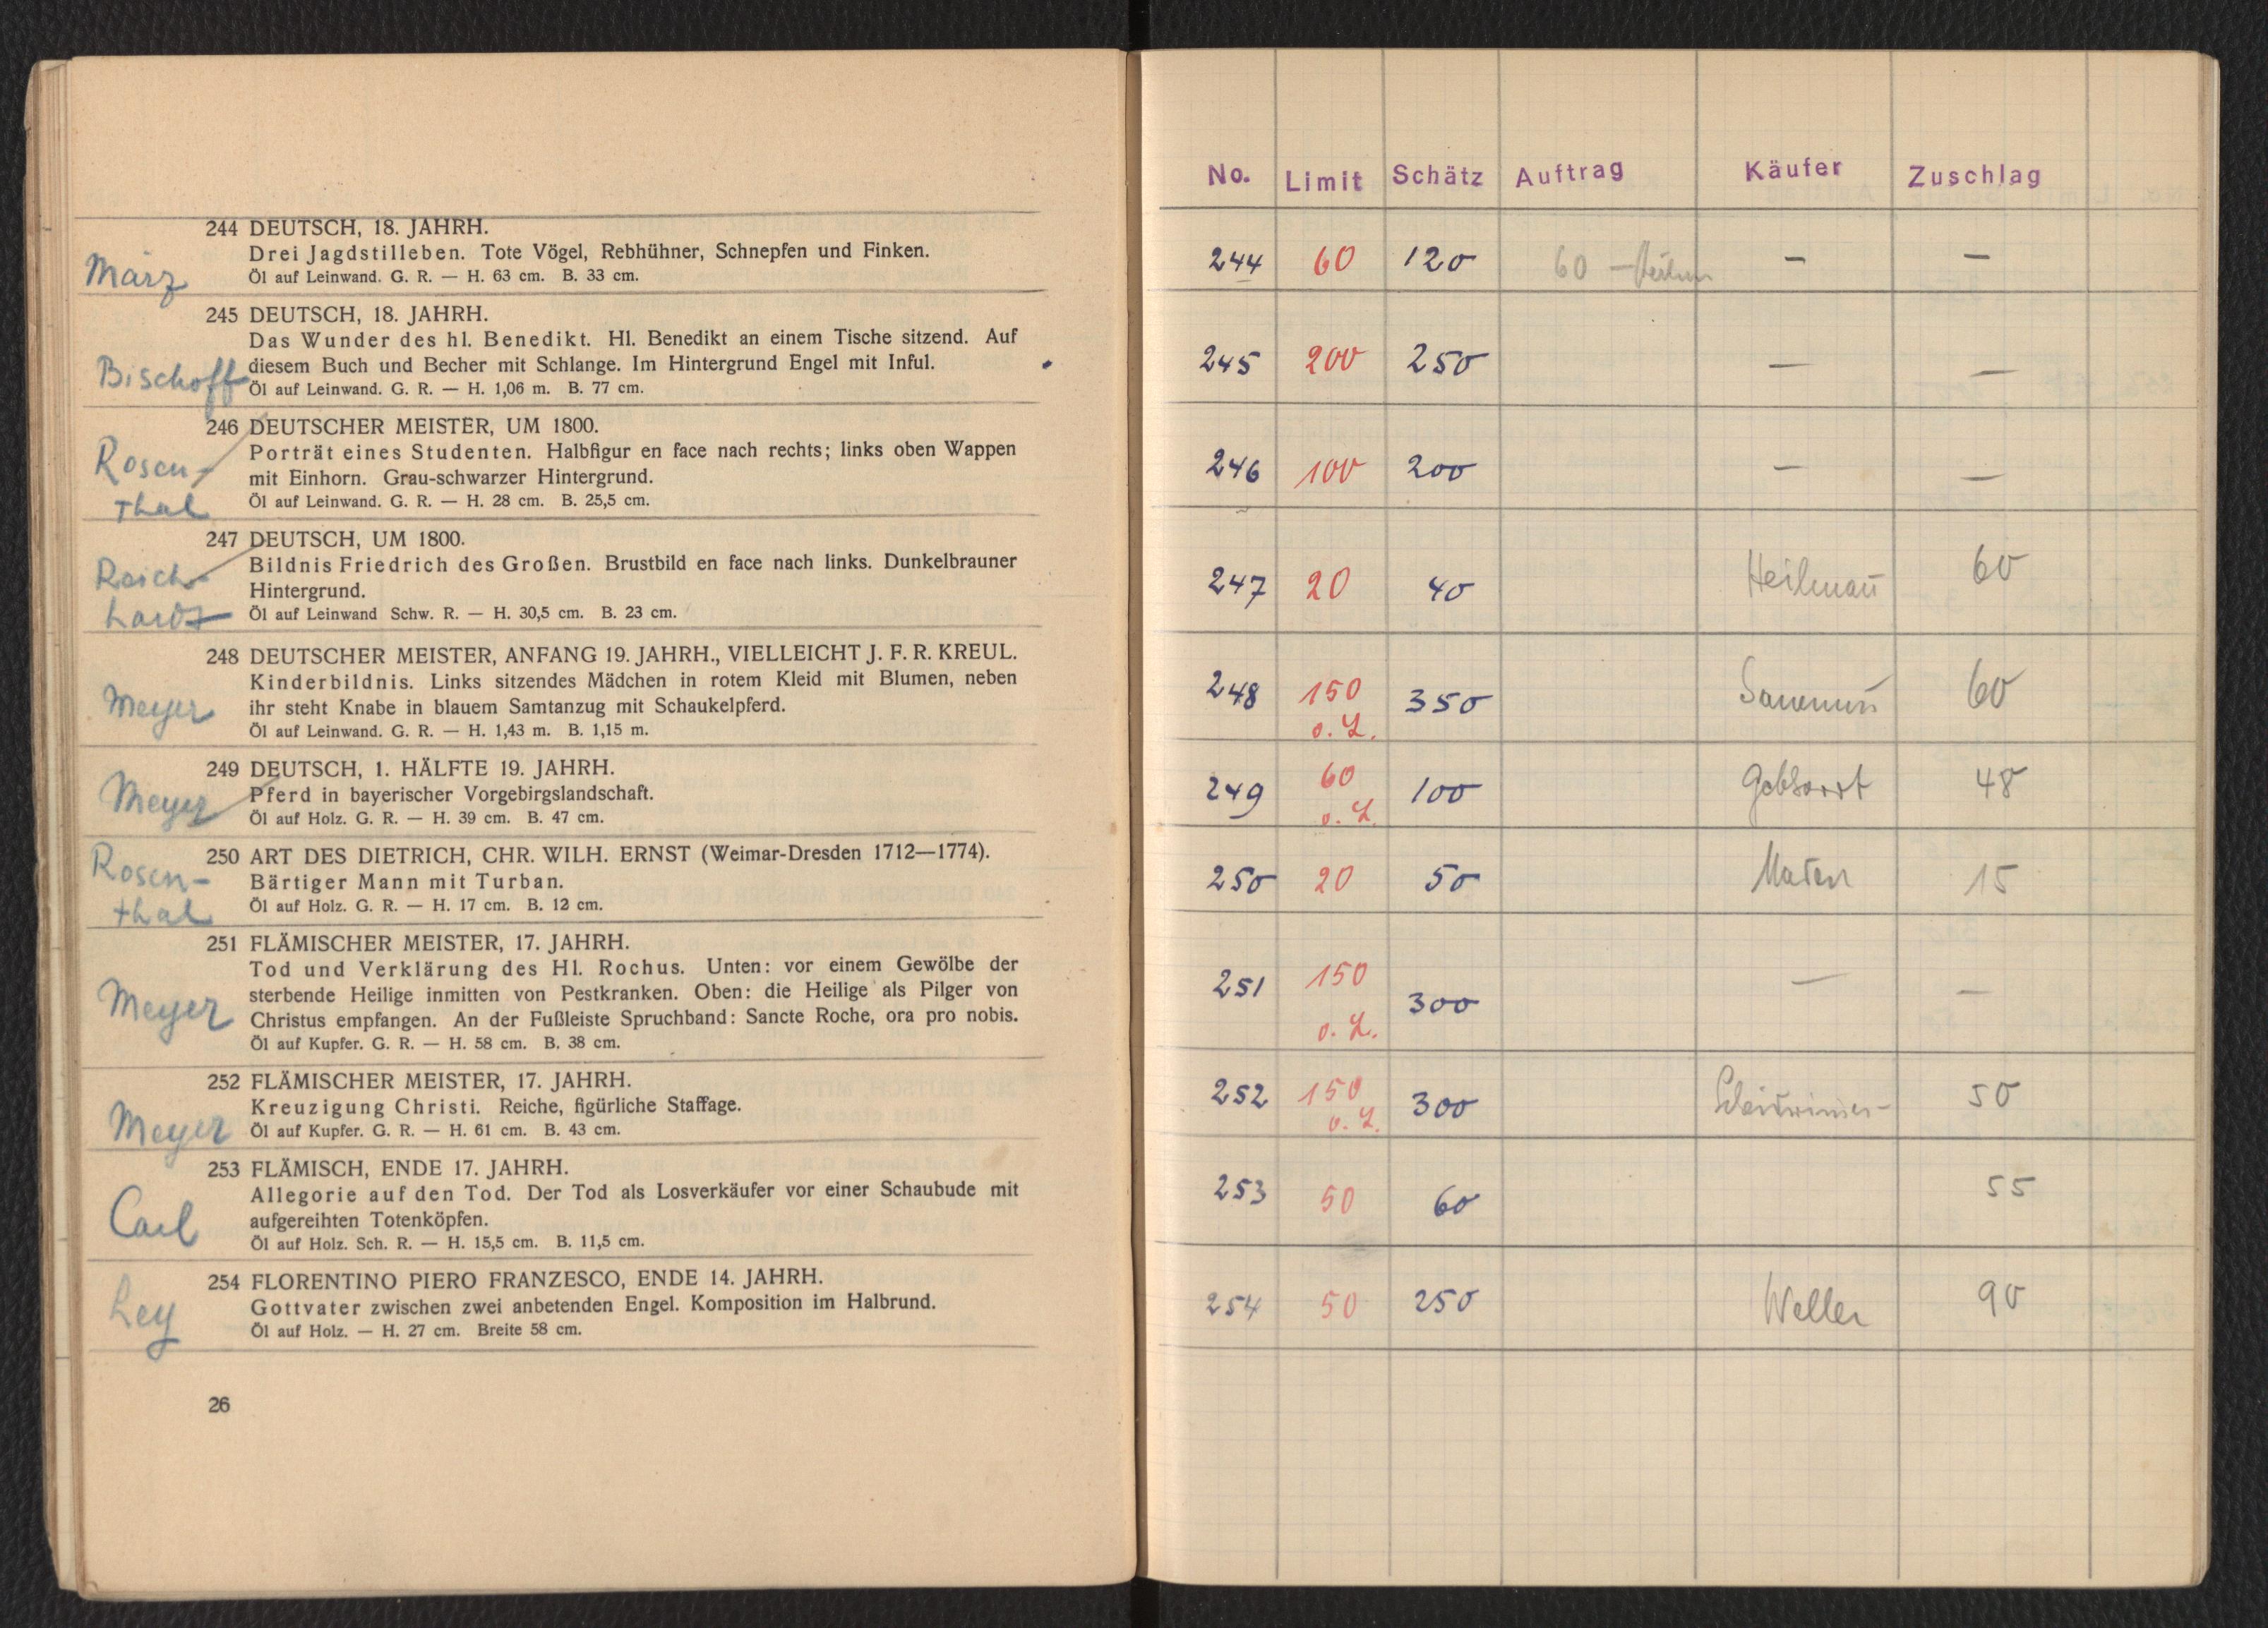 244 DEUTSCH, 18. JAHRH.
Drei Jagdstilleben. Tote Vögel, Rebhühner, Schnepfen und Finken.
März
Öl auf Leinwand. G. R. — H. 63 cm. B. 33 cm.
245 DEUTSCH, 18. JAHRH.
Das Wunder des hl. Benedikt. Hl. Benedikt an einem Tische sitzend. Auf
Bischoff
diesem Buch und Becher mit Schlange. Im Hintergrund Engel mit Inful.
Öl auf Leinwand. G. R. — H. 1,06 m. B. 77 cm.
246 DEUTSCHER MEISTER, UM 1800.
Rosen-
Porträt eines Studenten. Halbfigur en face nach rechts; links oben Wappen
mit Einhorn. Grau-schwarzer Hintergrund.
thal
Öl auf Leinwand. G. R. — H. 28 cm. B. 25,5 cm.
247 DEUTSCH, UM 1800.
Reich-
Bildnis Friedrich des Großen. Brustbild en face nach links. Dunkelbrauner
Hintergrund.
hardt
Öl auf Leinwand Schw. R. — H. 30,5 cm. B. 23 cm.
248 DEUTSCHER MEISTER, ANFANG 19. JAHRH., VIELLEICHT J. F. R. KREUL.
Kinderbildnis. Links sitzendes Mädchen in rotem Kleid mit Blumen, neben
Meyer
ihr steht Knabe in blauem Samtanzug mit Schaukelpferd.
Öl auf Leinwand. G. R. — H. 1,43 m. B. 1,15 m.
249 DEUTSCH, 1. HÄLFTE 19. JAHRH.
Meyer
Pferd in bayerischer Vorgebirgslandschaft.
Öl auf Holz. G. R. — H. 39 cm. B. 47 cm.
Rosen-
250 ART DES DIETRICH, CHR. WILH. ERNST (Weimar-Dresden 1712—1774).
Bärtiger Mann mit Turban.
thal
Öl auf Holz. G. R. — H. 17 cm. B. 12 cm.
251 FLÄMISCHER MEISTER, 17. JAHRH.
Tod und Verklärung des Hl. Rochus. Unten: vor einem Gewölbe der
sterbende Heilige inmitten von Pestkranken. Oben: die Heilige als Pilger von
Meyer
Christus empfangen. An der Fußleiste Spruchband: Sancte Roche, ora pro nobis.
Öl auf Kupfer. G. R. — H. 58 cm. B. 38 cm.
252 FLÄMISCHER MEISTER, 17. JAHRH.
Kreuzigung Christi. Reiche, figürliche Staffage.
Meyer
Öl auf Kupfer. G. R. — H. 61 cm. B. 43 cm.
253 FLÄMISCH, ENDE 17. JAHRH.
Allegorie auf den Tod. Der Tod als Losverkäufer vor einer Schaubude mit
Carl
aufgereihten Totenköpfen.
Öl auf Holz. Sch. R. — H. 15,5 cm. B. 11,5 cm.
254 FLORENTINO PIERO FRANZESCO, ENDE 14. JAHRH.
Ley
Gottvater zwischen zwei anbetenden Engel. Komposition im Halbrund.
Öl auf Holz. — H. 27 cm. Breite 58 cm.
26
No. Limit Schätz Auftrag Käufer Zuschlag
244 60 120 60 — — —
245 200 250 — —
246 100 200 — —
247 20 40 Heilmañ 60
248 150 350 60
o. L.
249 60 100 Gebhardt 48
o. L.
250 20 50 15
251 150 300 — —
o. L.
252 150 300 50
o. L.
253 50 60 55
254 50 250 Weller 90